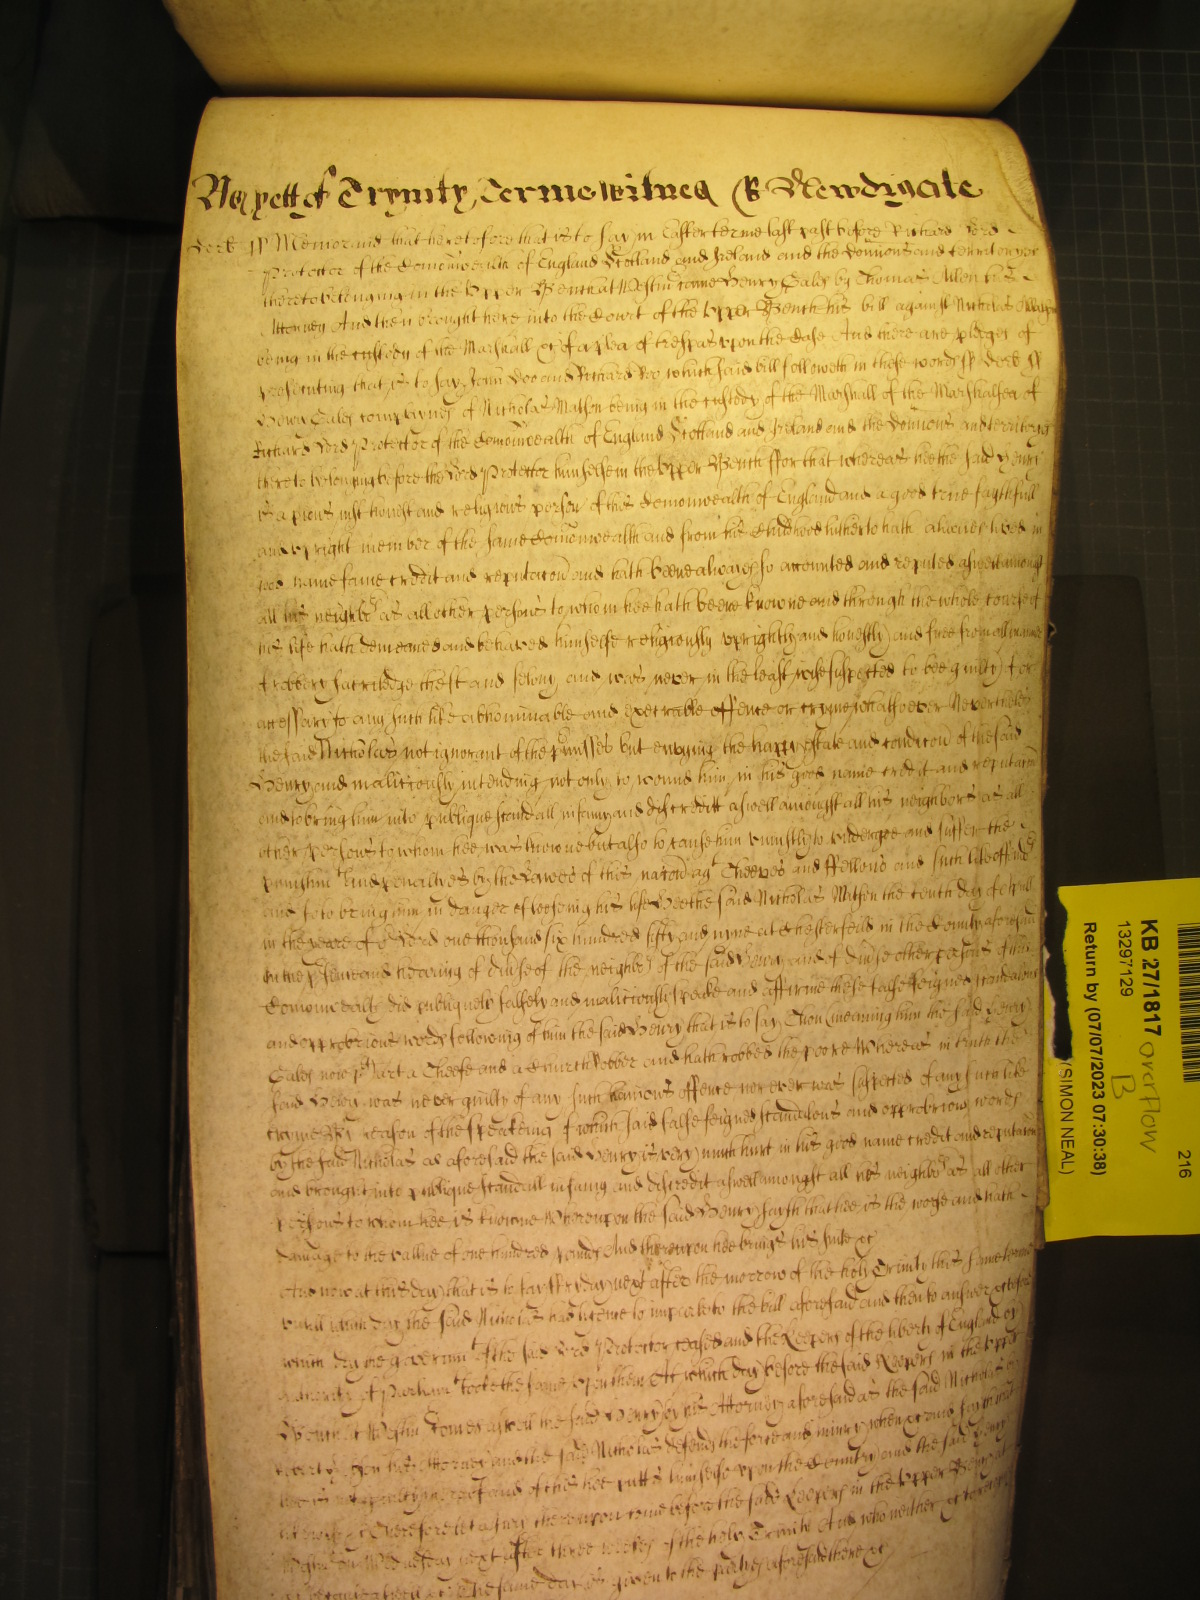 As yett of Trynity Terme witnes R Newdigate
Derb ss Memorand that heretofore that is to say in Easter terme last past before Richard Lord
Protector of the Comonwealth of England Scotland and Ireland and the Dominions and territoryes
thereto belonging in the Upper Bench at Westm came Henry Cales by Thomas Allen his
Attorney And then brought here into the Court of the Upper Bench his bill against Nicholas Matson
being in the custody of the Marshall &c of a plea of trespas upon the Case And there are pledges of
prosecuting that is to say John Doo and Richard Roo which said bill followeth in these words ss Derb ss
Henry Cales complaynes of Nicholas Matson being in the custody of the Marshall of the Marshalsea of
Richard Lord Protector of the Comonwealth of England Scotland and Ireland and the Dominions and territoryes
thereto belonging before the Lord Protector himselfe in the Upper Bench ffor that whereas hee the said Henry
is a pious just honest and religious person of this Comonwealth of England and a good true faythfull
and upright member of the same Comonwealth and from his Childhood hitherto hath alwaies lived in
good name fame credit and reputacon and hath beene alwayes so accounted and reputed aswell amongst
all his neighbrs as all other persons to whom hee hath beene knowne and through the whole course of
his life hath demeaned and behaved himselfe religiously uprightly and honestly and free from all manner
of robbery sacriledge theft and felony and was never in the least wise suspected to bee guilty of or
accessary to any such like abhominable and execrable offence or cryme whatsoever Neverthelesse
the said Nicholas not ignorant of the premisses but envying the happy estate and condicon of the said
Henry and maliciously intending not only to wound him in his good name credit and reputacon
and to bring him into publique scandall infamy and discreditt aswell amongst all his neighbors as all
other persons to whom hee was knowne but also to cause him unjustly to undergoe and suffer the
punishmt and penaltyes by the Lawes of this nacon agt Theeves and ffellons and such like offendrs
and so to bring him in danger of loosening his life Hee the said Nicholas Matson the tenth day of Aprill
in the yeare of or Lord one thousand six hundred fifty and nyne at Chesterfeild in the County aforesaid
in the presence and hearing of diverse of the neighbrs of the said Henry and of diverse other persons of this
Comonwealth did publiquely falsely and maliciously speake and affirme these false feigned scandalous
and opprobrious words following of him the said Henry that is to say Thou (meaning him the said Henry
Cales now pl) art a Theefe and a Church Robber and hath robbed the poore Whereas in truth the
said Henry was never guilty of any such heinous offence nor ever was suspected of any such like
cryme By reason of the speaking of which said false feigned scandalous and opprobrious words
by the said Nicholas as aforesaid the said Henry is very much hurt in his good name credit and reputacon
and brought into publique scandall infamy and discredit aswell amongst all his neighbrs as all other
persons to whom hee is knowne Whereupon the said Henry sayth that hee is the worse and hath
damage to the vallue of one hundred pounds And thereupon hee brings his suite &c
And now at this day that is to say ffryday next after the morrow of the holy Trinity this same terme
untill which day the said Nicholas had licence to imparle to the bill aforesaid and then to answer &c before
which day the governmt of the said Lord Protector ceased and the Keepers of the liberty of England by
authority of Parliamt tooke the same upon them At which day before the said Keepers in the Upper
Bench at Westm comes aswell the said Henry by his Attorney aforesaid as the said Nicholas by
his Attorney and the said Nicholas defends the force and injury when &c and sayth that
hee is not guilty and of this hee putts himselfe upon the Country and the said Henry
likewise &c Therefore let a jury thereupon come before the said Keepers in the Upper Bench at
Westm on Wednesday next after three weekes of the holy Trinity And who neither &c to
recognize &c The same day is given to the partyes aforesaid there &c
KB 27/1817 overflow
13297129
B
Return by (07/07/2023 07:30:38)
(SIMON NEAL)
216